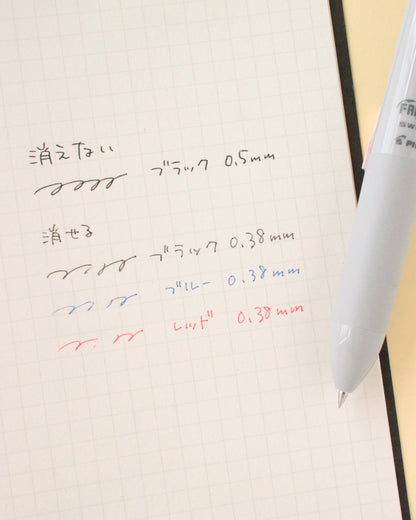 消えない
ブラック 0.5mm
消せる
ブラック 0.38mm
ブルー 0.38mm
レッド 0.38mm